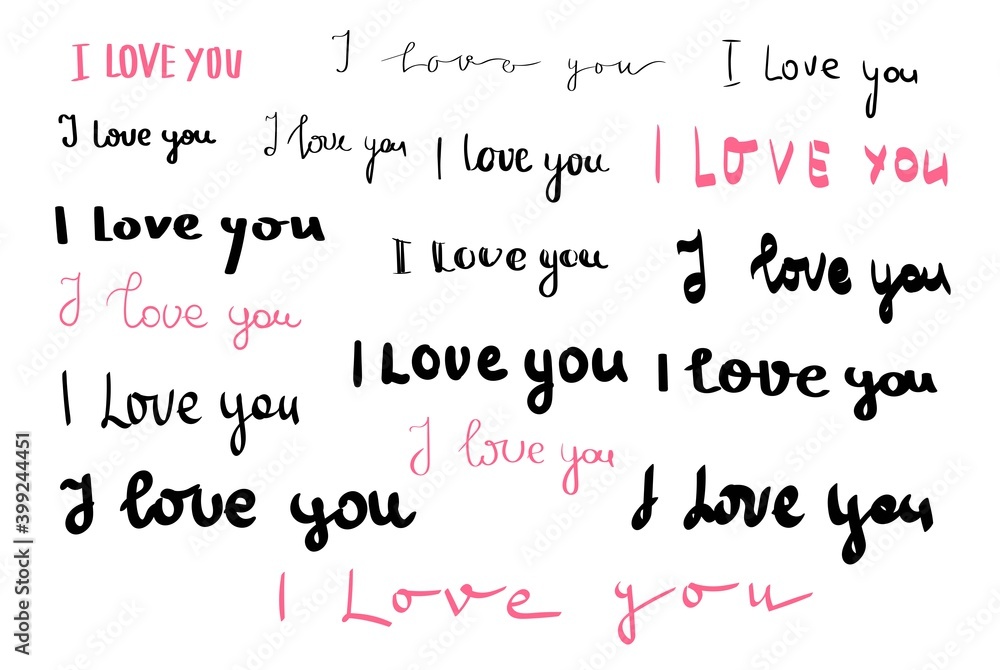 I LOVE YOU
I love you
I Love you
I love you
I love you
I love you
I LOVE YOU
I Love you
I Love you
I love you
I love you
I Love you
I love you
I Love you
I love you
I love you
I Love you
I Love you
Adobe Stock | #399244451